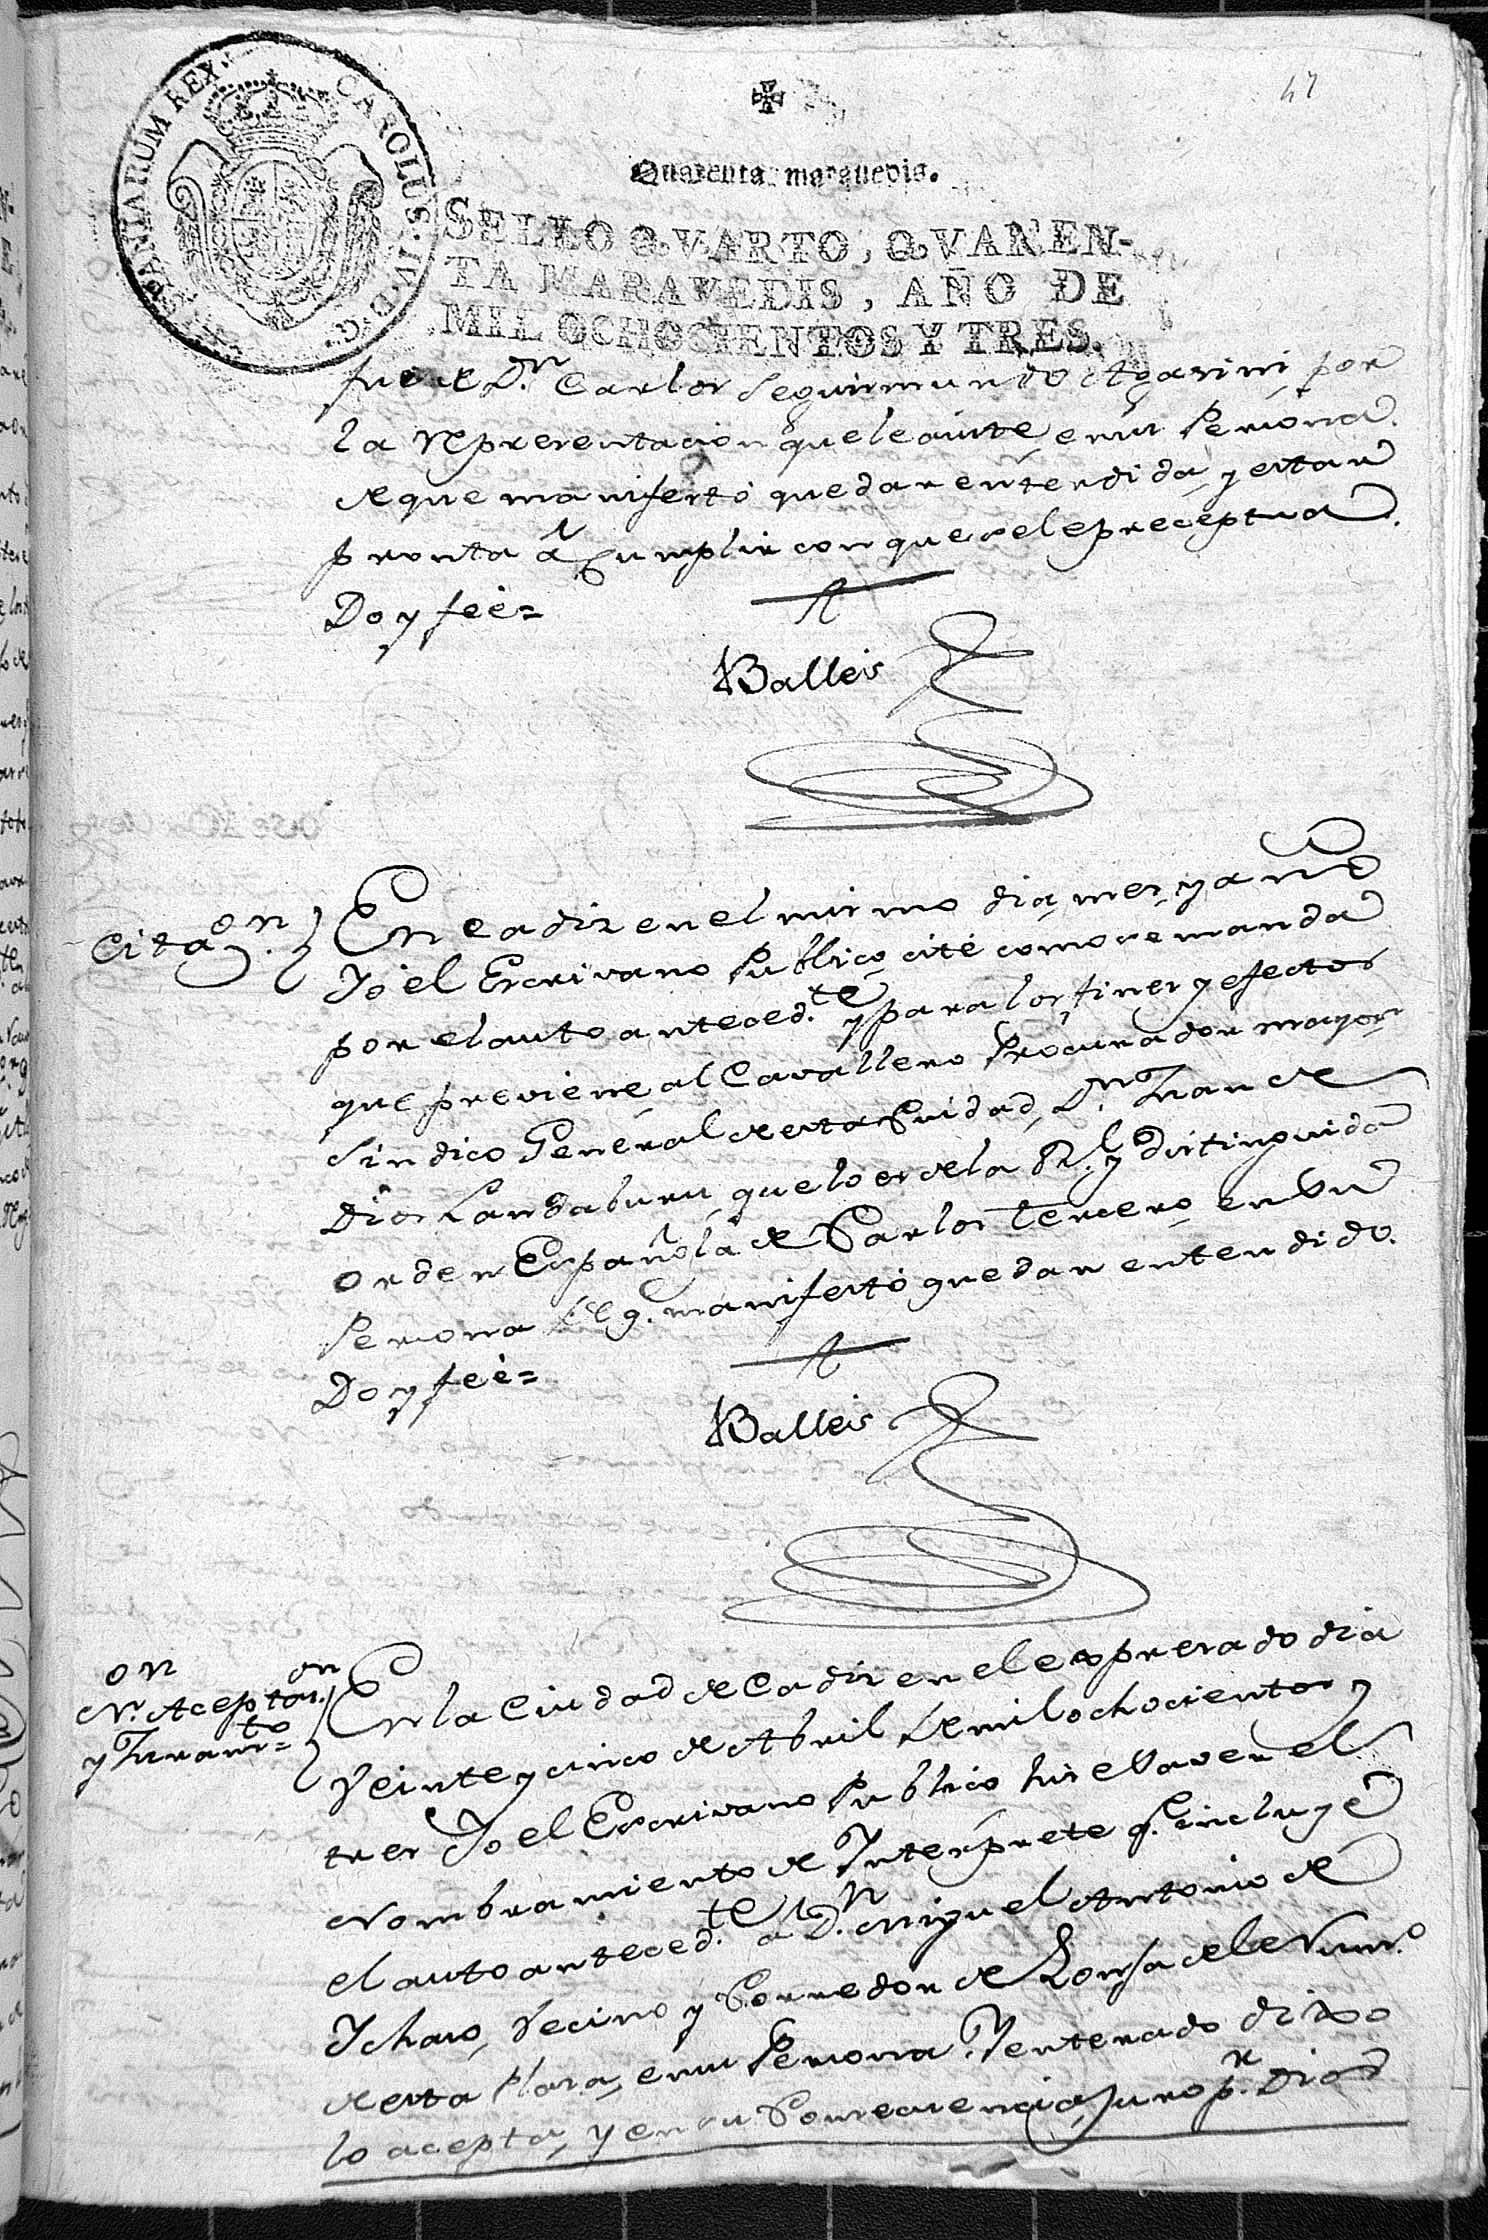 47
HISPANIARUM REX. CAROLUS. IV. D. G.
Quarenta maravedis.
SELLO QVARTO, QVAREN-
TA MARAVEDIS, AÑO DE
MIL OCHOCIENTOS Y TRES.
fue de D.n Carlos Seguismundo Agasini, por
la representacion que le asiste, en su Persona.
de que manifestó quedar entendida, y estar
pronta á Cumplir con que se le preceptua.
Doy feè=
Balleis
Cita.on
En Cadiz en el mismo dia, mes, y año
Yo èl Escrivano Publico, cité como se manda
por el auto anteced.te y para los fines y efectos
que previene, al Cavallero Procurador mayor
Sindico General de esta Ciudad, D.n Juan de
Dios Landaburu, que lo es de la R.l y Distinguida
orden Española de Carlos Tercero, en su
Persona de q. manifestó quedar entendido.
Doy feè=
Balleis
N.on Aceptas.on
y Juram.to=
En la Ciudad de Cadiz en el expresado dia
Veinte y cinco de Abril de mil ochocientos y
tres Yo el Escrivano Publico hise Saver el
Nombramiento de Intérprete q. incluye
el auto anteced.te a D.n Miguel Antonio de
Ichaso, Vecino y Corredor de Lonja del Num.o
de esta Plaza, en su Persona. Y enterado dixo
lo acepta, y en su Consecuencia, Juro p.r Dios